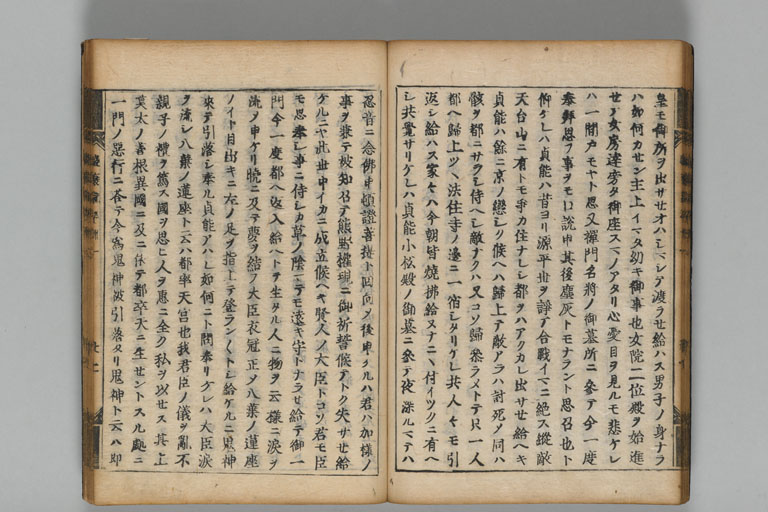 皇モ御所ヲ出サセオハシマシテ渡ラせ給ハス男子ノ身ナラ
ハ如何カせン主上イマタ幼キ御事也女院二位殿ヲ始進
せテ女房達旁々御座スマノアタリ心憂目ヲ見ルモ悲ケレ
ハ一間戸モヤト思又禅門名将ノ御墓所ニ参テ今一度
奉拝思フ事ヲモ口説申其後塵灰トモナラント思召也ト
仰ケレハ貞能ハ昔ヨリ源平世ヲ諍テ合戦イマニ絶ス縦敵
天台山ニ有トモ争カ住ナレシ都ヲハアクカレ出サせ給ヘキ
貞能ハ餘ニ京ノ恋シク候ヘハ歸上テ敵アラハ討死ヲ同ハ
骸ヲ都ニサラシ侍ヘシ敵ナクハ又コソ歸参ラメトテ只一人
都ヘ歸上ツヽ法住寺ノ邊ニ一宿シタリケレ共人々モ引
返シ給ハス家々ハ今朝皆焼拂給ヌナニハ付イツクニ有ヘ
シ共覚サリケレハ貞能小松殿ノ御墓ニ参テ夜深ルマテハ
忍音ニ念佛申頓證菩提ト回向ノ後申ケルハ君ハ加様ノ
事ヲ兼テ被知召テ熊野權現ニ御祈誓候テトク失サせ給
ケルニヤ此世中イカニ成立候ヘキ賢人ノ大臣トコソ君モ臣
モ思奉シ事ニ侍シカ草ノ陰ニテモ遠キ守トナラせ給テ御一
門今一度都ヘ返入給ヘトテ生タル人ニ物ヲ云様ニ涙ヲ
流ノ申ケリ暁ニ及テ夢ヲ結フ大臣衣冠正メ八葉ノ蓮座
ノイト目出キニ左ノ足ヲ指上テ登ラン〱トシ給ケルニ鬼神
来テ引落シ奉ル貞能アハレ如何ニト問奉リケレハ大臣涙
ヲ流シ八葉ノ蓮座ト云ハ都率天宮也我君臣ノ儀ヲ乱不
親子ノ禮ヲ篤ス國ヲ思ヒ人ヲ恵ニ全ク私ヲ以せス其上
莫太ノ善根異國ニ及ニ依テ都卒天ニ生せントスル處ニ
一門ノ悪行ニ答テ今為鬼神被引落タリ鬼神ト云ハ即